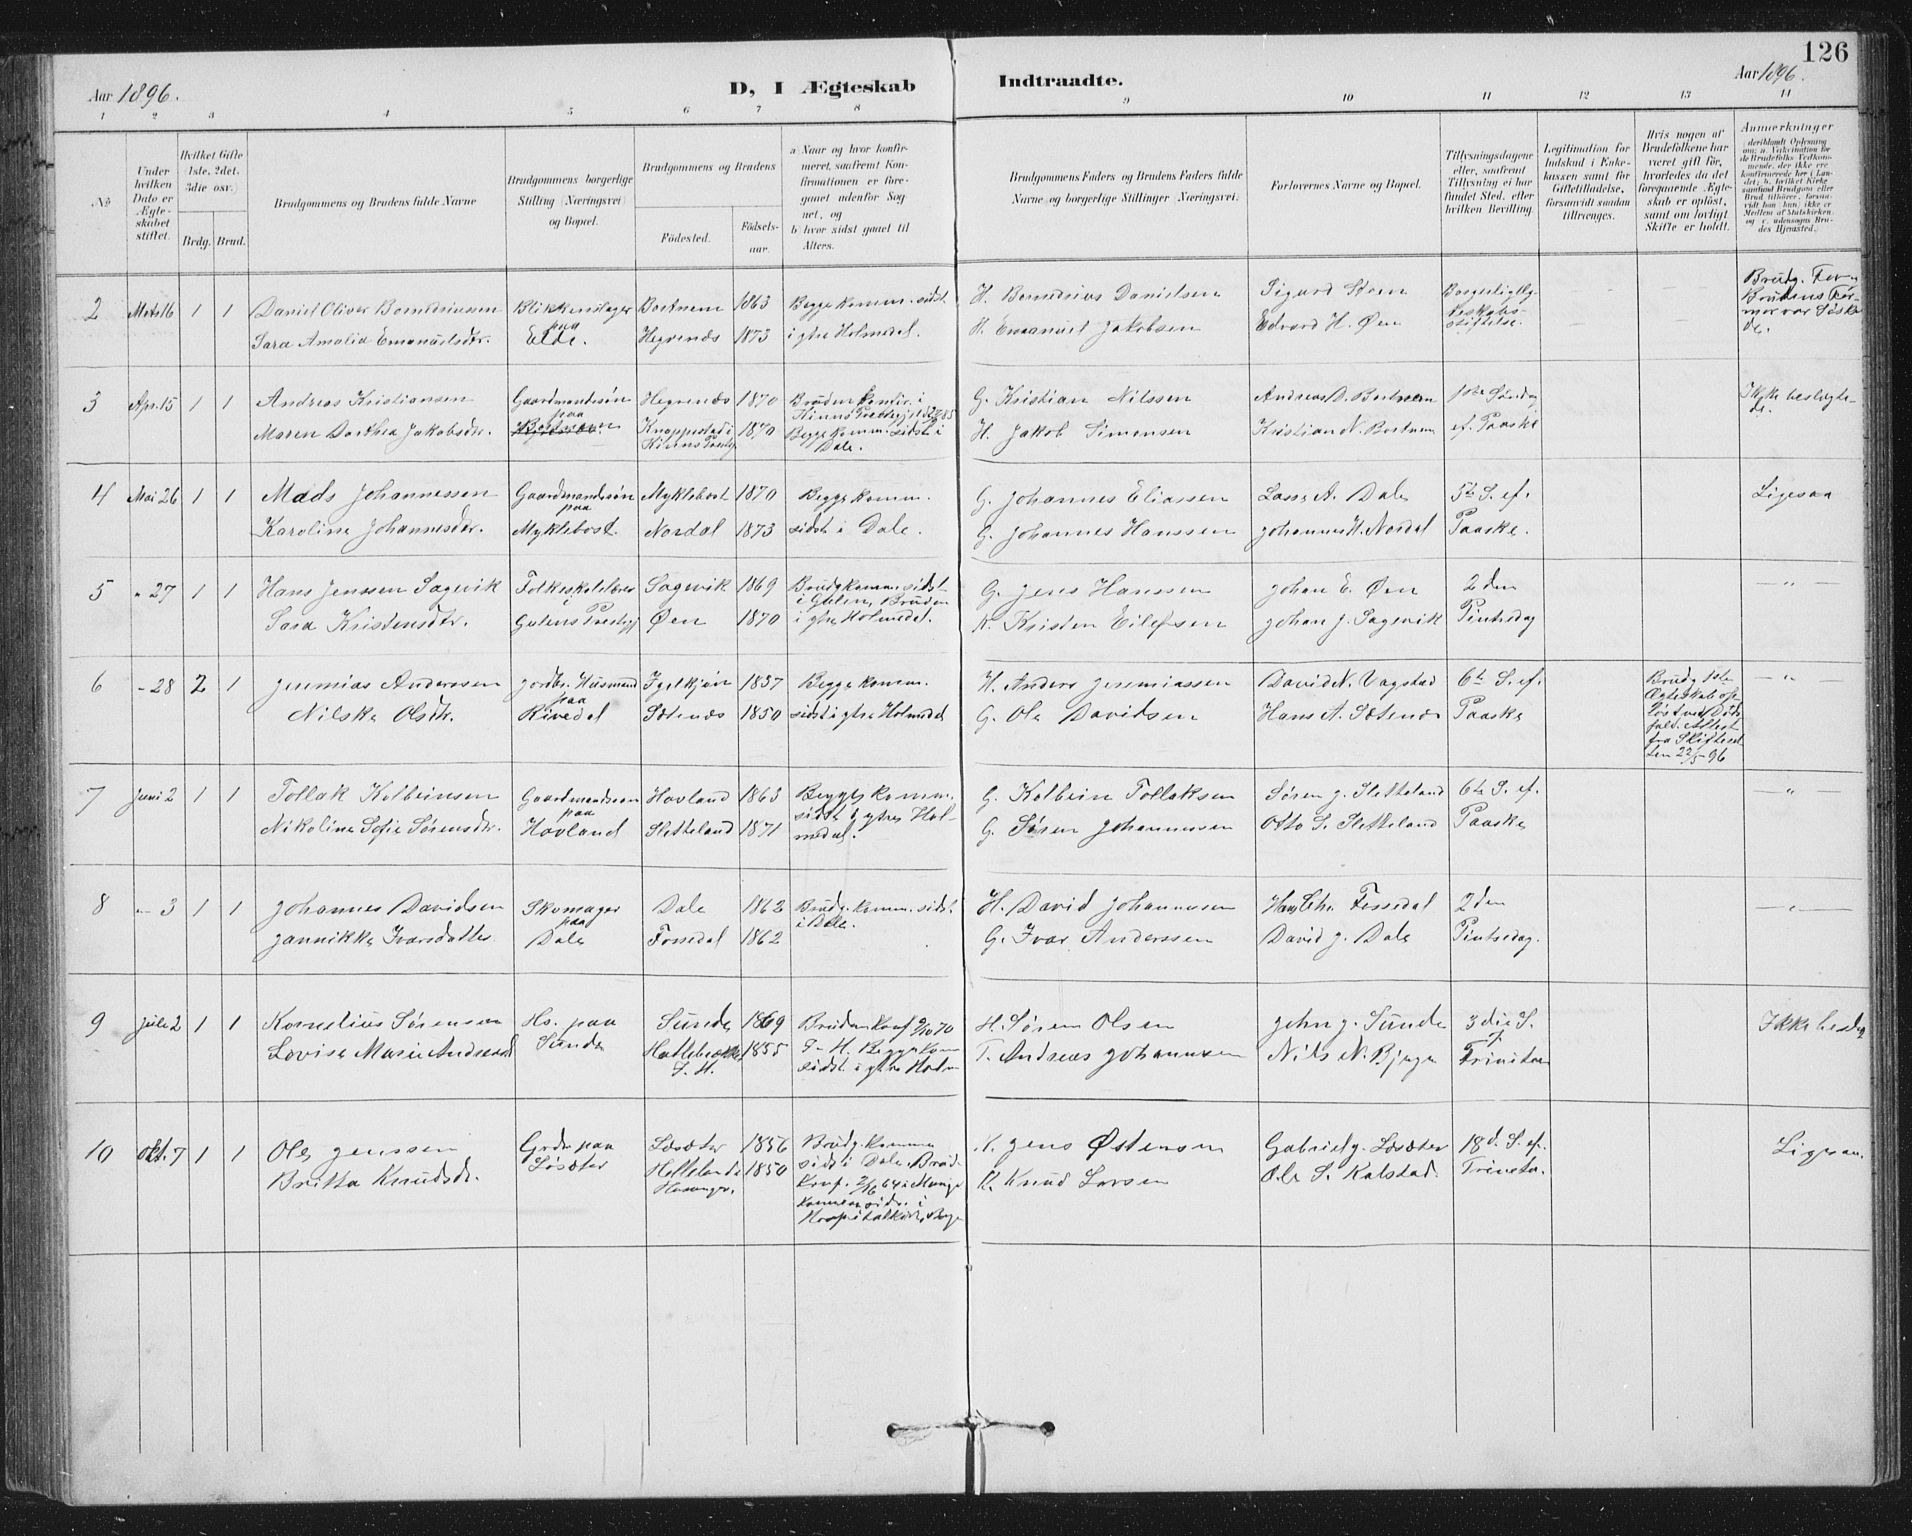 126
Aar 1896.
D, I Ægteskab Indtraadte.
Aar 1896.
1 2 3 4 5 6 7 8 9 10 11 12 13 14
No
Under hvilken Dato er Ægteskabet stiftet.
Hvilket Gifte (1ste, 2det, 3die osv.)
Brdg. Brud.
Brudgommens og Brudens fulde Navne
Brudgommens borgerlige Stilling (Næringsvei) og Bopæl.
Brudgommens og Brudens
Fødested.
Fødselsaar.
a Naar og hvor konfirmeret, saafremt Konfirmationen er foregaaet udenfor Sognet, og
b) hvor sidst gaaet til Alters.
Brudgommens Faders og Brudens Faders fulde Navne og borgerlige Stillinger (Næringsvei).
Forlovernes Navne og Bopæl.
Tillysningsdagene eller, saafremt Tillysning ei har fundet Sted, efter hvilken Bevilling.
Legitimation for Indskud i Enkekassen samt for Giftetilladelse, forsaavidt saadan tiltrænges.
Hvis nogen af Brudefolkene har været gift før, hvorledes da det foregaaende Ægteskab er opløst, samt om lovligt Skifte er holdt.
Anmerkninger
2 Mrts 16 1 1 Daniel Oliver Bomdsiussen Blikkenslager paa Bortnem 1863 Begge komm. sidst H. Danielsen Sigurd Steen Borgerlig Ægteskabsstiftelse. Brudg. Farm Brudens Farmor var Søskede.
Sara Amalia Emanuelsdtr. Elde. Hegrenæs 1873 i ytre Holmedal. H. Emanuel Jakobsen Edvard H. Øen
3 Apr. 15 1 1 Andreas Kristiansen Gaardmandssøn paa Hegrenæs 1870 Bruden konfir. i Kinns Prestegjeld G. Kristian Nilssen Andreas D. Bortnem 1ste Søndag Ikke beslægtede.
Maren Dorthea Jakobsdr. Bortnem Knappestad i Kinns Prestgj 1870 Begge komm. sidst i Dale. H. Jakob Simonsen Kristian N. Bortnem ef. Paaske
4 Mai 26 1 1 Mads Johannessen Gaardmandssøn paa Myklebost 1870 Begge komm. G. Johannes Eliassen Lasse A. Dale 5te S. ef. Ligesaa
Karoline Johannesdr. Myklebost. Nordal 1873 sidst i Dale. G. Johannes Hanssen Johannes H. Nordal Paaske.
5 " 27 1 1 Hans Jenssen Sagevik Folkeskolelærer i Sagevik 1869 Brudg komm. sidst G. Jens Hanssen Johan E. Øen 2den — " —
Sara Kristensdtr. Gulens Prestgj Øen 1870 i Gulen, Bruden i ytre Holmedal. K. Kristen Eilefsen Johan J. Sagevik Pintsedag
6 " 28 2 1 Jeremias Anderssen Jordbr. Husmand paa Igelkjøn 1837 Begge komm. H. Anders Jeremiassen David N. Vagstad 6te S. ef. Brudg 1ste Ægteskab opløst ved Dødsfald. Attest fra Skifteret ten 22/5 96 — " —
Nilske Olsdtr. Rivedal Sætenæs 1850 sidst i ytre Holmedal G. Ole Davidsen Hans A. Sætenæs Paaske
7 Juni 2 1 1 Tollak Kolbeinsen Gaardmandssøn paa Hovland 1863 Begge komm. G. Kolbein Tollaksen Søren J. Sletteland 6te S. ef. — " —
Nikoline Sofie Sørensdr. Hovland Sletteland 1871 sidst i ytre Holmedal. G. Søren Johannessen Otto S. Sletteland Paaske
8 " 3 1 1 Johannes Davidsen Skomager paa Dale 1862 Brudg. komm. sidst H. David Johannessen Hans Chr. Fossedal 2den — " —
Jannikke Ivarsdatter Dale Fossdal 1862 i Dale. G. Ivar Anderssen David J. Dale Pintsedag.
9 Juli 2 1 1 Kornelius Sørensen Hs. paa Sunde 1869 Bruden konf 9/10 70 H. Søren Olsen John J. Sunde 3die S. Ikke beslæg
Lovise Marie Andreasd Sunde Hatlebrekke I. H. 1855 I. H. Begge kom sidst i ytre Holm T. Andreas Johannessen Nils N. Bjerga ef Trinitas
10 Okt. 7 1 1 Ole Jenssen Grdm paa Losæter 1856 Brudg. komm sidst i Dale. Brud. K. Jens Østensen Gabriel J. Losæter 18d. S. ef. Ligesaa.
Britta Knudsdr. Losæter 1850 Konf. i Mange komm sidst i Hospitalkirke, Berge K. Knud Larsen Ole S. Kalstad. Trinita.